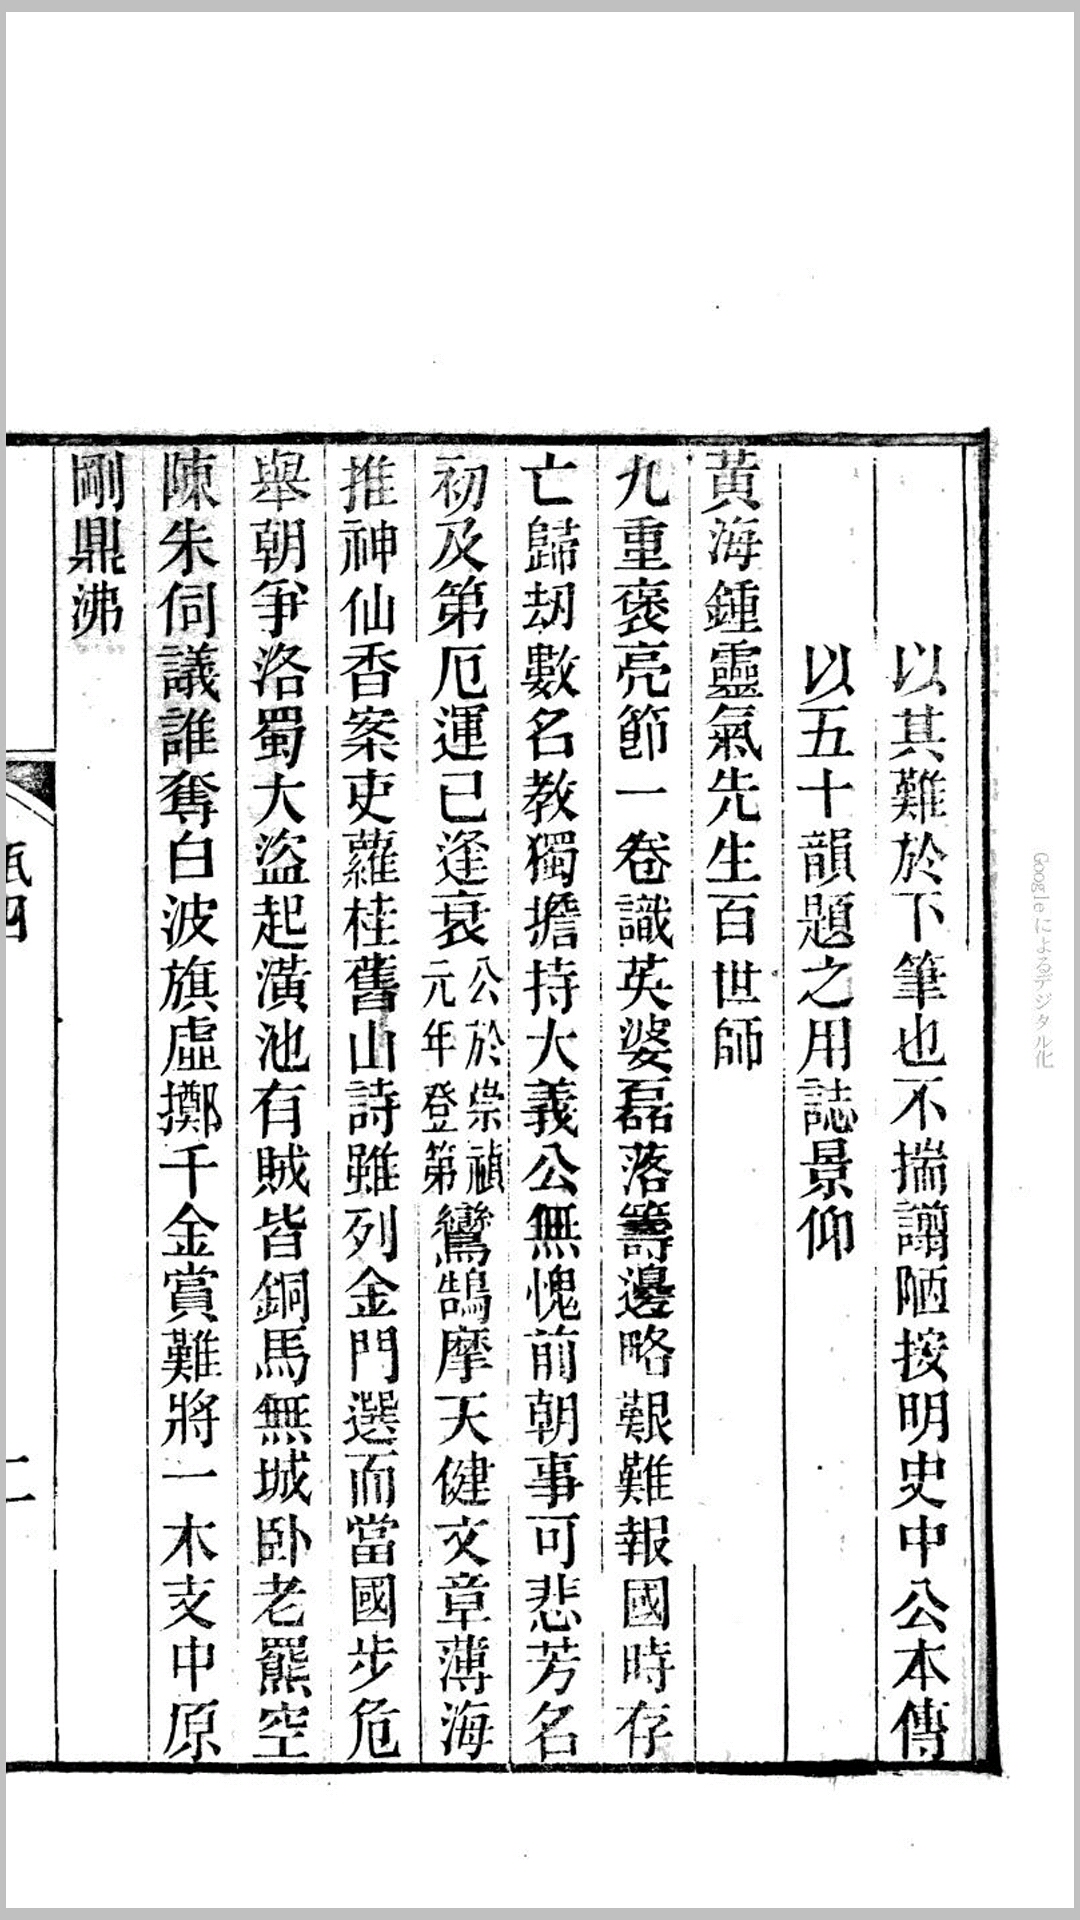 以其難於下筆也不揣譾陋按明史中公本傳
以五十韻題之用誌景仰
黃海鍾靈氣先生百世師
九重褒亮節一卷識英姿磊落籌邊略艱難報國時存
亡歸刧數名教獨擔持大義公無愧前朝事可悲芳名
初及第厄運已逢衰公於崇禎元年登第鸞鵠摩天健文章薄海
推神仙香案吏蘿桂舊山詩雖列金門選而當國步危
舉朝爭洛蜀大盜起潢池有賊皆銅馬無城臥老羆空
陳朱伺議誰奪白波旗虛擲千金賞難將一木支中原
剛鼎沸
四
二
Googleによるデジタル化